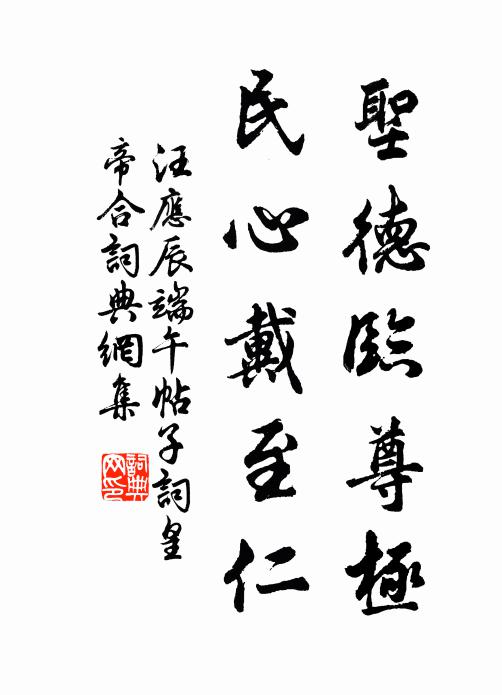 聖德臨尊極
民心戴至仁
汪應辰端午帖子詞皇
帝合詞典網集
詞典網印